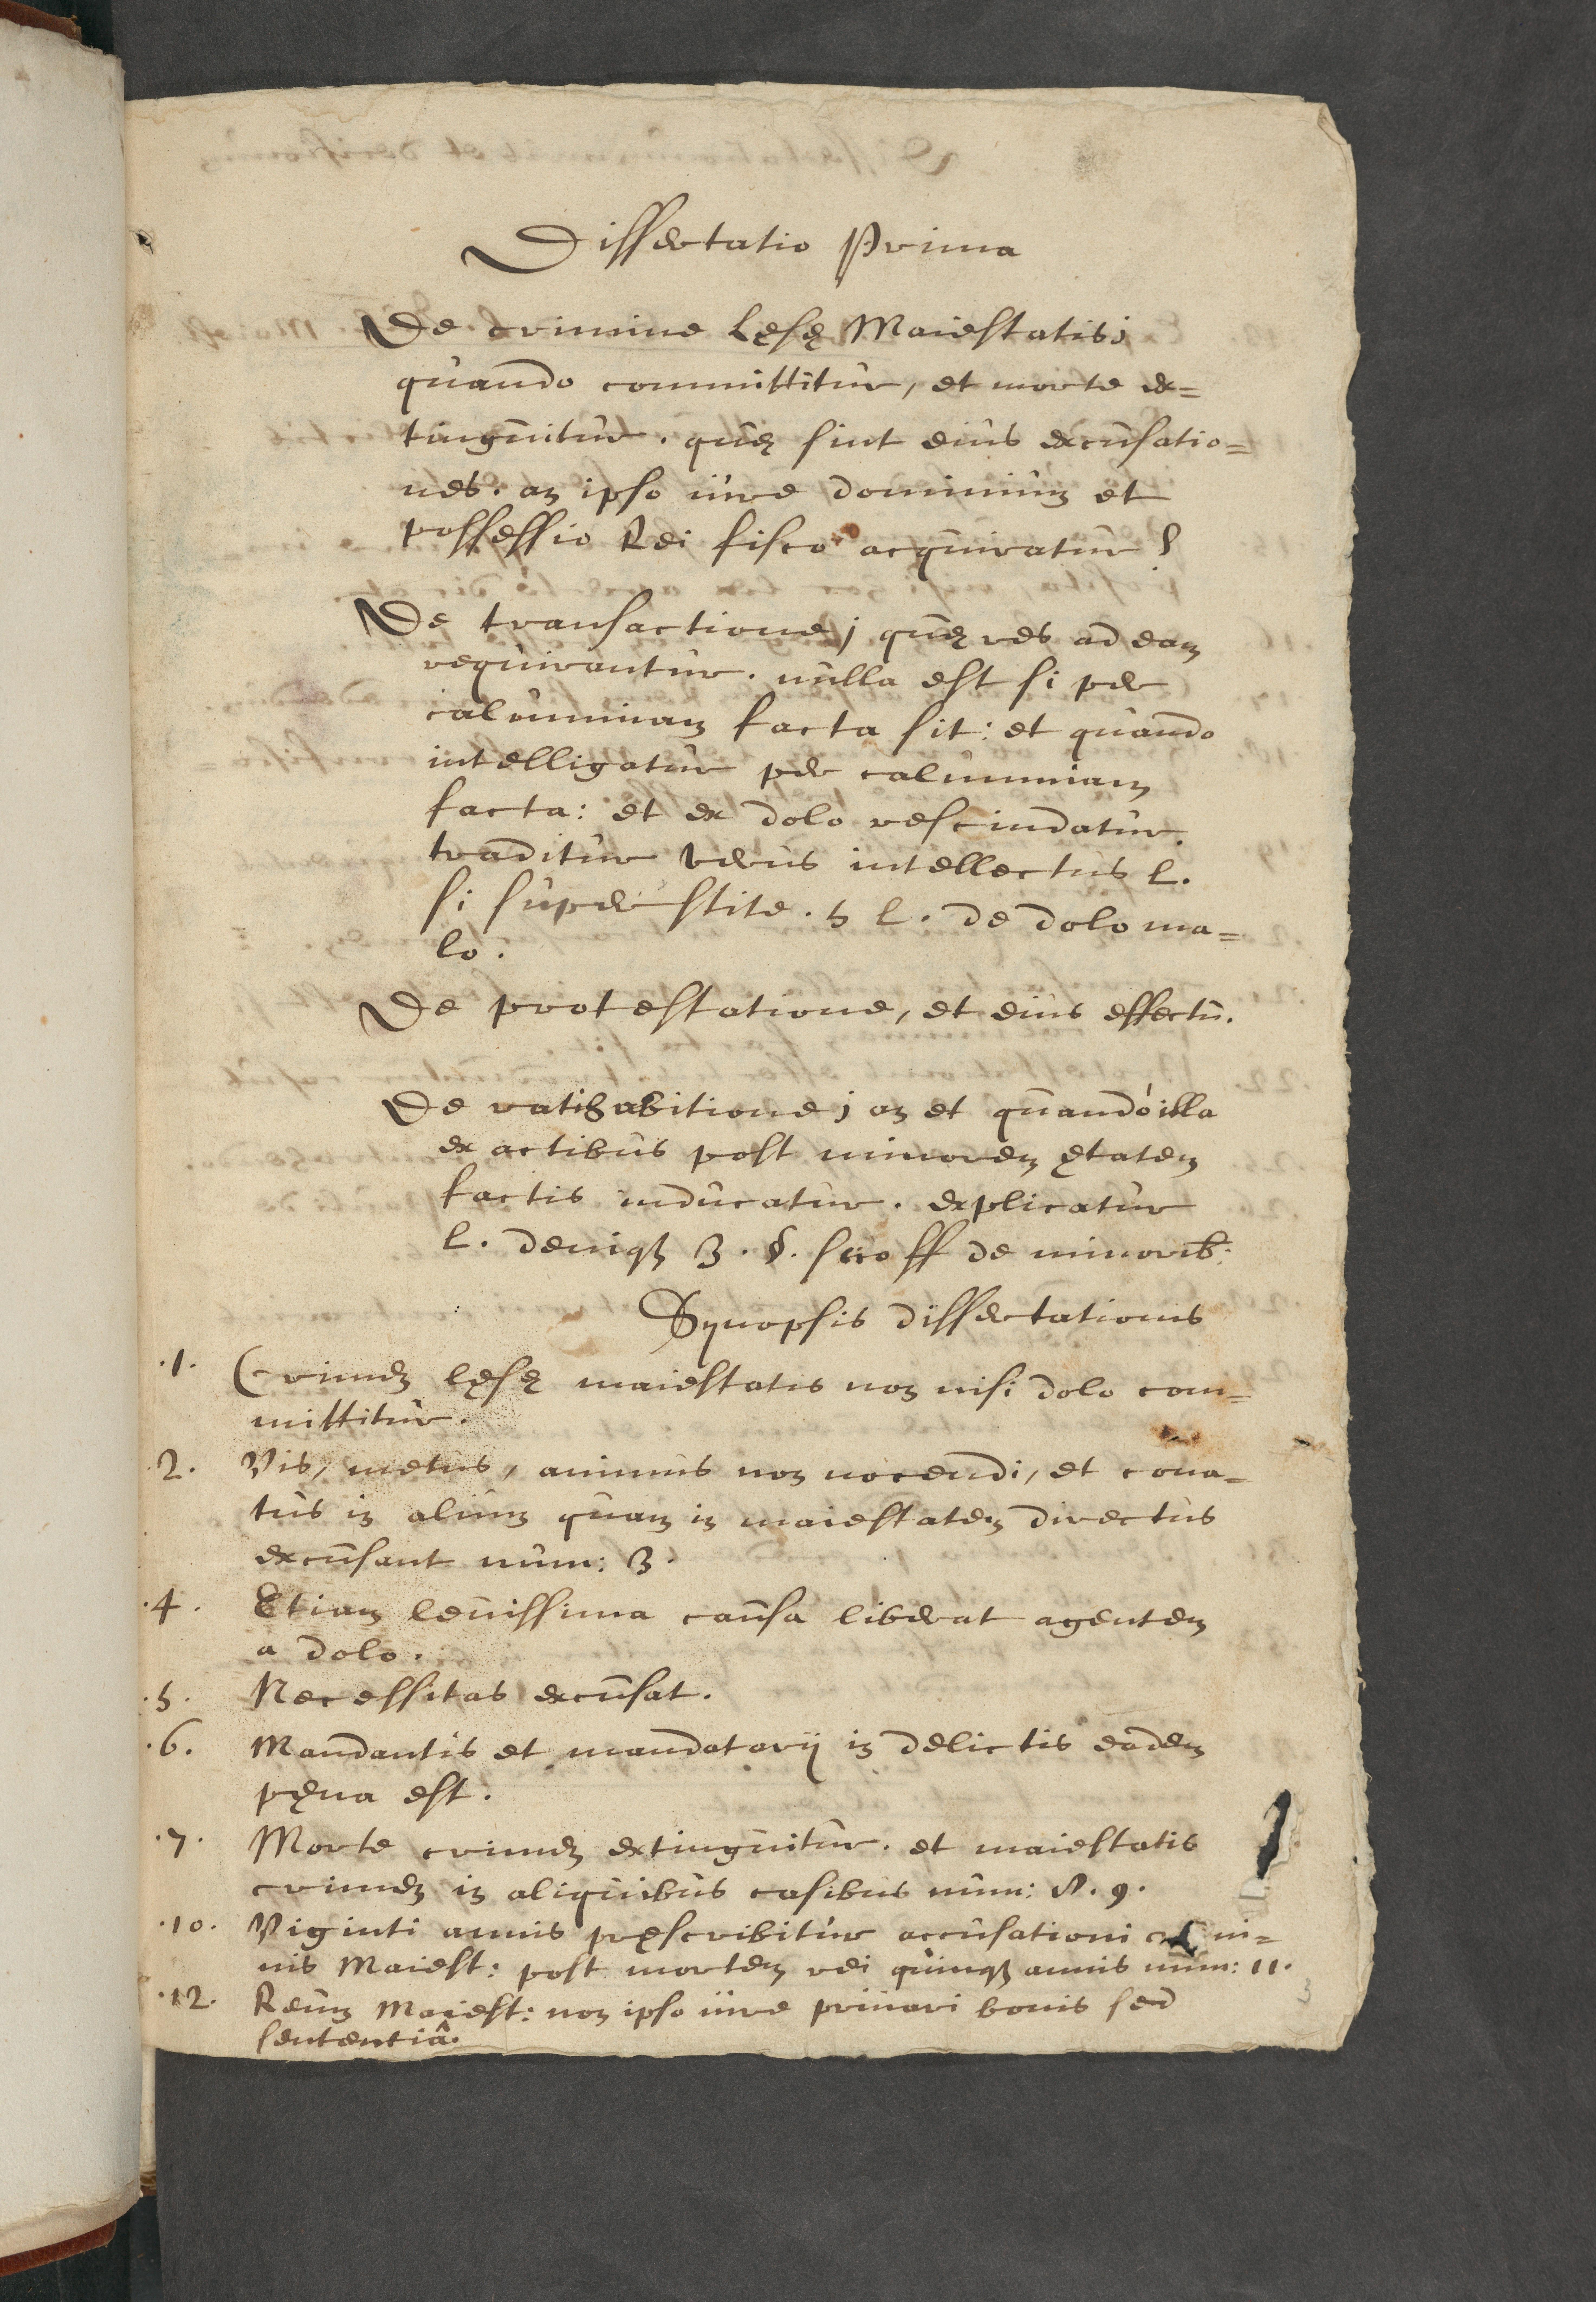 Dissertatio Prima
De crimine lęsę Maiestatis;
quando committitur, et morte ex=
tinguitur. quę sint eius excusatio=
nes. an ipso iure dominium et
possessio Rei fisco acquiratur?
De transactione; quę res ad eam
requirantur. nulla est si per
calumniam facta sit: et quando
intelligatur per calumniam
facta: et ex dolo rescindatur.
traditur verus intellectus l.
si superstite. 5 l. de dolo ma=
lo.
De protestatione, et eius effectu.
De ratihabitione; an et quando illa
ex actibus post minorem ętatem
factis inducatur. explicatur
l. deniqꝫ 3. §. ff de minorib:
Synopsis dissertationis
.1. Crimen lęsę maiestatis non nisi dolo com=
mittitur.
.2. Vis, metus, animus non nocendi, et cona=
tus in alium quam in maiestatem directus
excusant num: 3.
.4. Etiam levissima causa liberat agentem
a dolo.
.5. Necessitas excusat.
.6. Mandantis et mandatarij in delictis eadem
pęna est.
.7. Morte crimen extinguitur. et maiestatis
crimen in aliquibus casibus num: 8. 9.
.10. Viginti annis pręscribitur accusationi crimi=
nis Maiest: post mortem rei quinqꝫ annis num: 11.
.12. Reum Maiest: non ipso iure privari bonis sed
sententiâ.